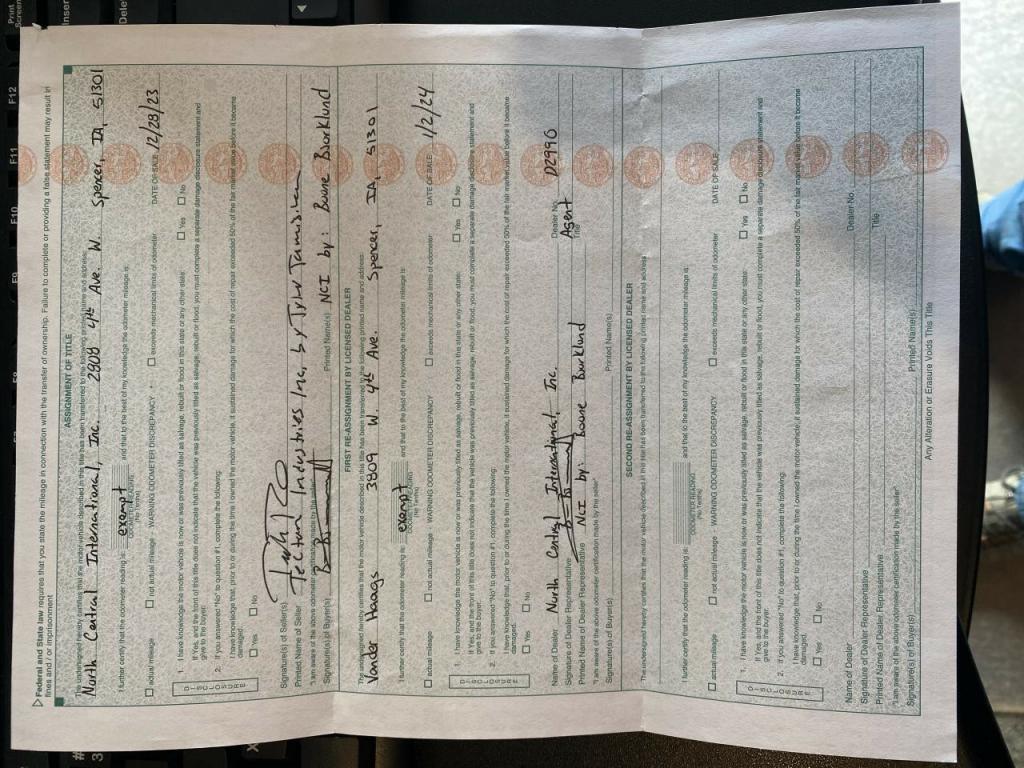 ▷ Federal and State law requires that you state the mileage in connection with the transfer of ownership. Failure to complete or providing a false statement may result in
fines and / or imprisonment
ASSIGNMENT OF TITLE
The undersigned hereby certifies that the motor vehicle described in this title has been transferred to the following printed name and address:
North Central International, Inc. 2908 4th Ave. W. Spencer, IA, 51301
I further certify that the odometer reading is: exempt and that to the best of my knowledge the odometer mileage is:
ODOMETER READING
(No Tenths)
☐ actual mileage ☐ not actual mileage - WARNING ODOMETER DISCREPANCY ☐ exceeds mechanical limits of odometer DATE OF SALE 12/28/23
1. I have knowledge the motor vehicle is now or was previously titled as salvage, rebuilt or flood in this state or any other state: ☐ Yes ☐ No
If Yes, and the front of this title does not indicate that the vehicle was previously titled as salvage, rebuilt or flood, you must complete a separate damage disclosure statement and
give to the buyer.
2. If you answered "No" to question #1, complete the following:
I have knowledge that, prior to or during the time I owned the motor vehicle, it sustained damage for which the cost of repair exceeded 50% of the fair market value before it became
damaged.
☐ Yes ☐ No
DISCLOSURE
Signature(s) of Seller(s)
Printed Name of Seller Tectum Industries Inc, by Tyler
"I am aware of the above odometer certification made by the seller"
Signature(s) of Buyer(s) Printed Name(s) NCI by: Boone Borklund
FIRST RE-ASSIGNMENT BY LICENSED DEALER
The undersigned hereby certifies that the motor vehicle described in this title has been transferred to the following printed name and address:
Vander Haags 3809 W. 4th Ave. Spencer, IA, 51301
I further certify that the odometer reading is: exempt and that to the best of my knowledge the odometer mileage is:
ODOMETER READING
(No Tenths)
☐ actual mileage ☐ not actual mileage - WARNING ODOMETER DISCREPANCY ☐ exceeds mechanical limits of odometer DATE OF SALE: 1/2/24
1. I have knowledge the motor vehicle is now or was previously titled as salvage, rebuilt or flood in this state or any other state: ☐ Yes ☐ No
If Yes, and the front of this title does not indicate that the vehicle was previously titled as salvage, rebuilt or flood, you must complete a separate damage disclosure statement and
give to the buyer.
2. If you answered "No" to question #1, complete the following:
I have knowledge that, prior to or during the time I owned the motor vehicle, it sustained damage for which the cost of repair exceeded 50% of the fair market value before it became
damaged.
☐ Yes ☐ No
DISCLOSURE
Name of Dealer North Central International, Inc. Dealer No. D2996
Signature of Dealer Representative Title Agent
Printed Name of Dealer Representative NCI by: Boone Borklund
"I am aware of the above odometer certification made by the seller"
Signature(s) of Buyer(s) Printed Name(s)
SECOND RE-ASSIGNMENT BY LICENSED DEALER
The undersigned hereby certifies that the motor vehicle described in this title has been transferred to the following printed name and address:
I further certify that the odometer reading is: and that to the best of my knowledge the odometer mileage is:
ODOMETER READING
(No Tenths)
☐ actual mileage ☐ not actual mileage - WARNING ODOMETER DISCREPANCY ☐ exceeds mechanical limits of odometer DATE OF SALE:
1. I have knowledge the motor vehicle is now or was previously titled as salvage, rebuilt or flood in this state or any other state: ☐ Yes ☐ No
If Yes, and the front of this title does not indicate that the vehicle was previously titled as salvage, rebuilt or flood, you must complete a separate damage disclosure statement and
give to the buyer.
2. If you answered "No" to question #1, complete the following:
I have knowledge that, prior to or during the time I owned the motor vehicle, it sustained damage for which the cost of repair exceeded 50% of the fair market value before it became
damaged.
☐ Yes ☐ No
DISCLOSURE
Name of Dealer Dealer No.
Signature of Dealer Representative Title
Printed Name of Dealer Representative
"I am aware of the above odometer certification made by the seller"
Signature(s) of Buyer(s) Printed Name(s)
Any Alteration or Erasure Voids This Title
Print
Screen
Insert
Delete
F12
F11
F10
F9
F8
#
3
X